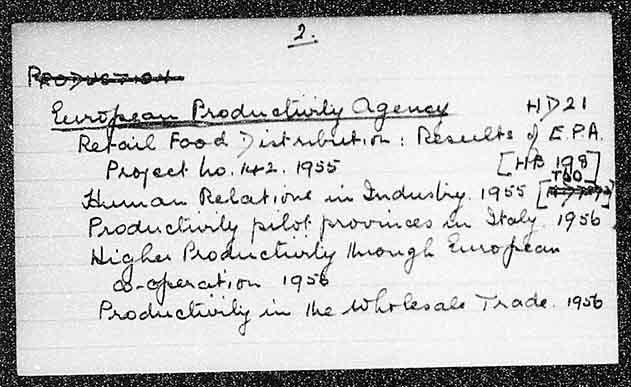 2.
PRODUCTION
European Productivity Agency HD21
Retail Food Distribution: Results of E.P.A.
Project no. 142. 1955 [HB 198]
Human Relations in Industry. 1955 [
Productivity pilot provinces in Italy. 1956
Higher Productivity through European
co-operation 1956
Productivity in the Wholesale Trade. 1956